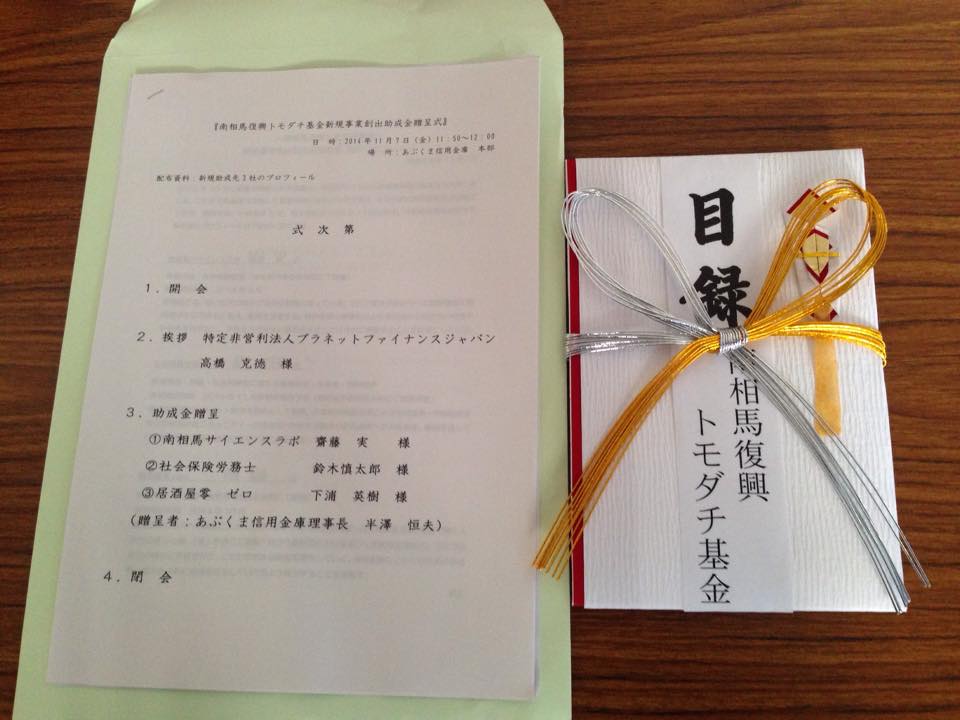 『南相馬復興トモダチ基金新規事業創出助成金贈呈式』
日 時：2014年11月7日（金）11：50～12：00
場 所：あぶくま信用金庫 本部
配布資料：新規助成先3社のプロフィール
式 次 第
1．開 会
2．挨拶 特定非営利法人プラネットファイナンスジャパン
高橋 克徳 様
3．助成金贈呈
①南相馬サイエンスラボ 齋藤 実 様
②社会保険労務士 鈴木慎太郎 様
③居酒屋零 ゼロ 下浦 英樹 様
（贈呈者：あぶくま信用金庫理事長 半澤 恒夫）
4．閉 会
目録
南相馬復興
トモダチ基金